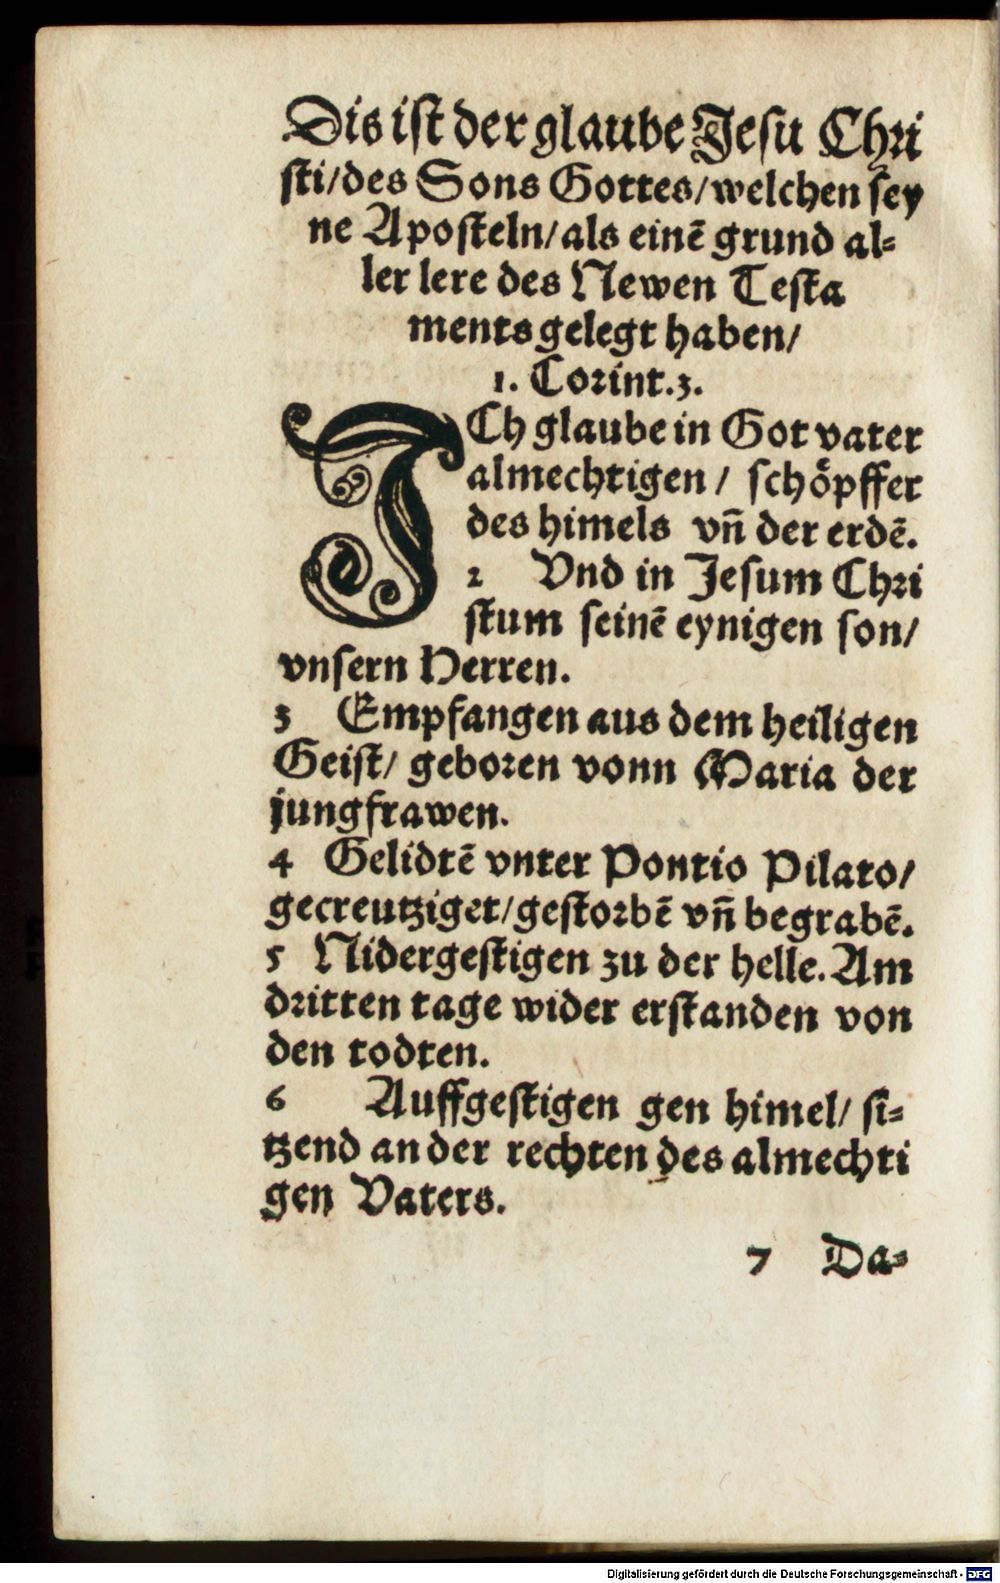 Dis ist der glaube Jesu Chri
sti/des Sons Gottes/welchen sey
ne Aposteln/als einē grund al⸗
ler lere des Newen Testa
ments gelegt haben/
1. Corint.3.
ICh glaube in Got vater
almechtigen / schöpffer
des himels vn̄ der erdē.
2 Vnd in Jesum Chri
stum seinē eynigen son/
vnsern Herren.
3 Empfangen aus dem heiligen
Geist/ geboren vonn Maria der
jungfrawen.
4 Gelidtē vnter Pontio Pilato/
gecreutziget/gestorbē vn̄ begrabē.
5 Nidergestigen zu der helle. Am
dritten tage wider erstanden von
den todten.
6 Auffgestigen gen himel/ si⸗
tzend an der rechten des almechti
gen Vaters.
7 Da⸗
Digitalisierung gefördert durch die Deutsche Forschungsgemeinschaft - DFG